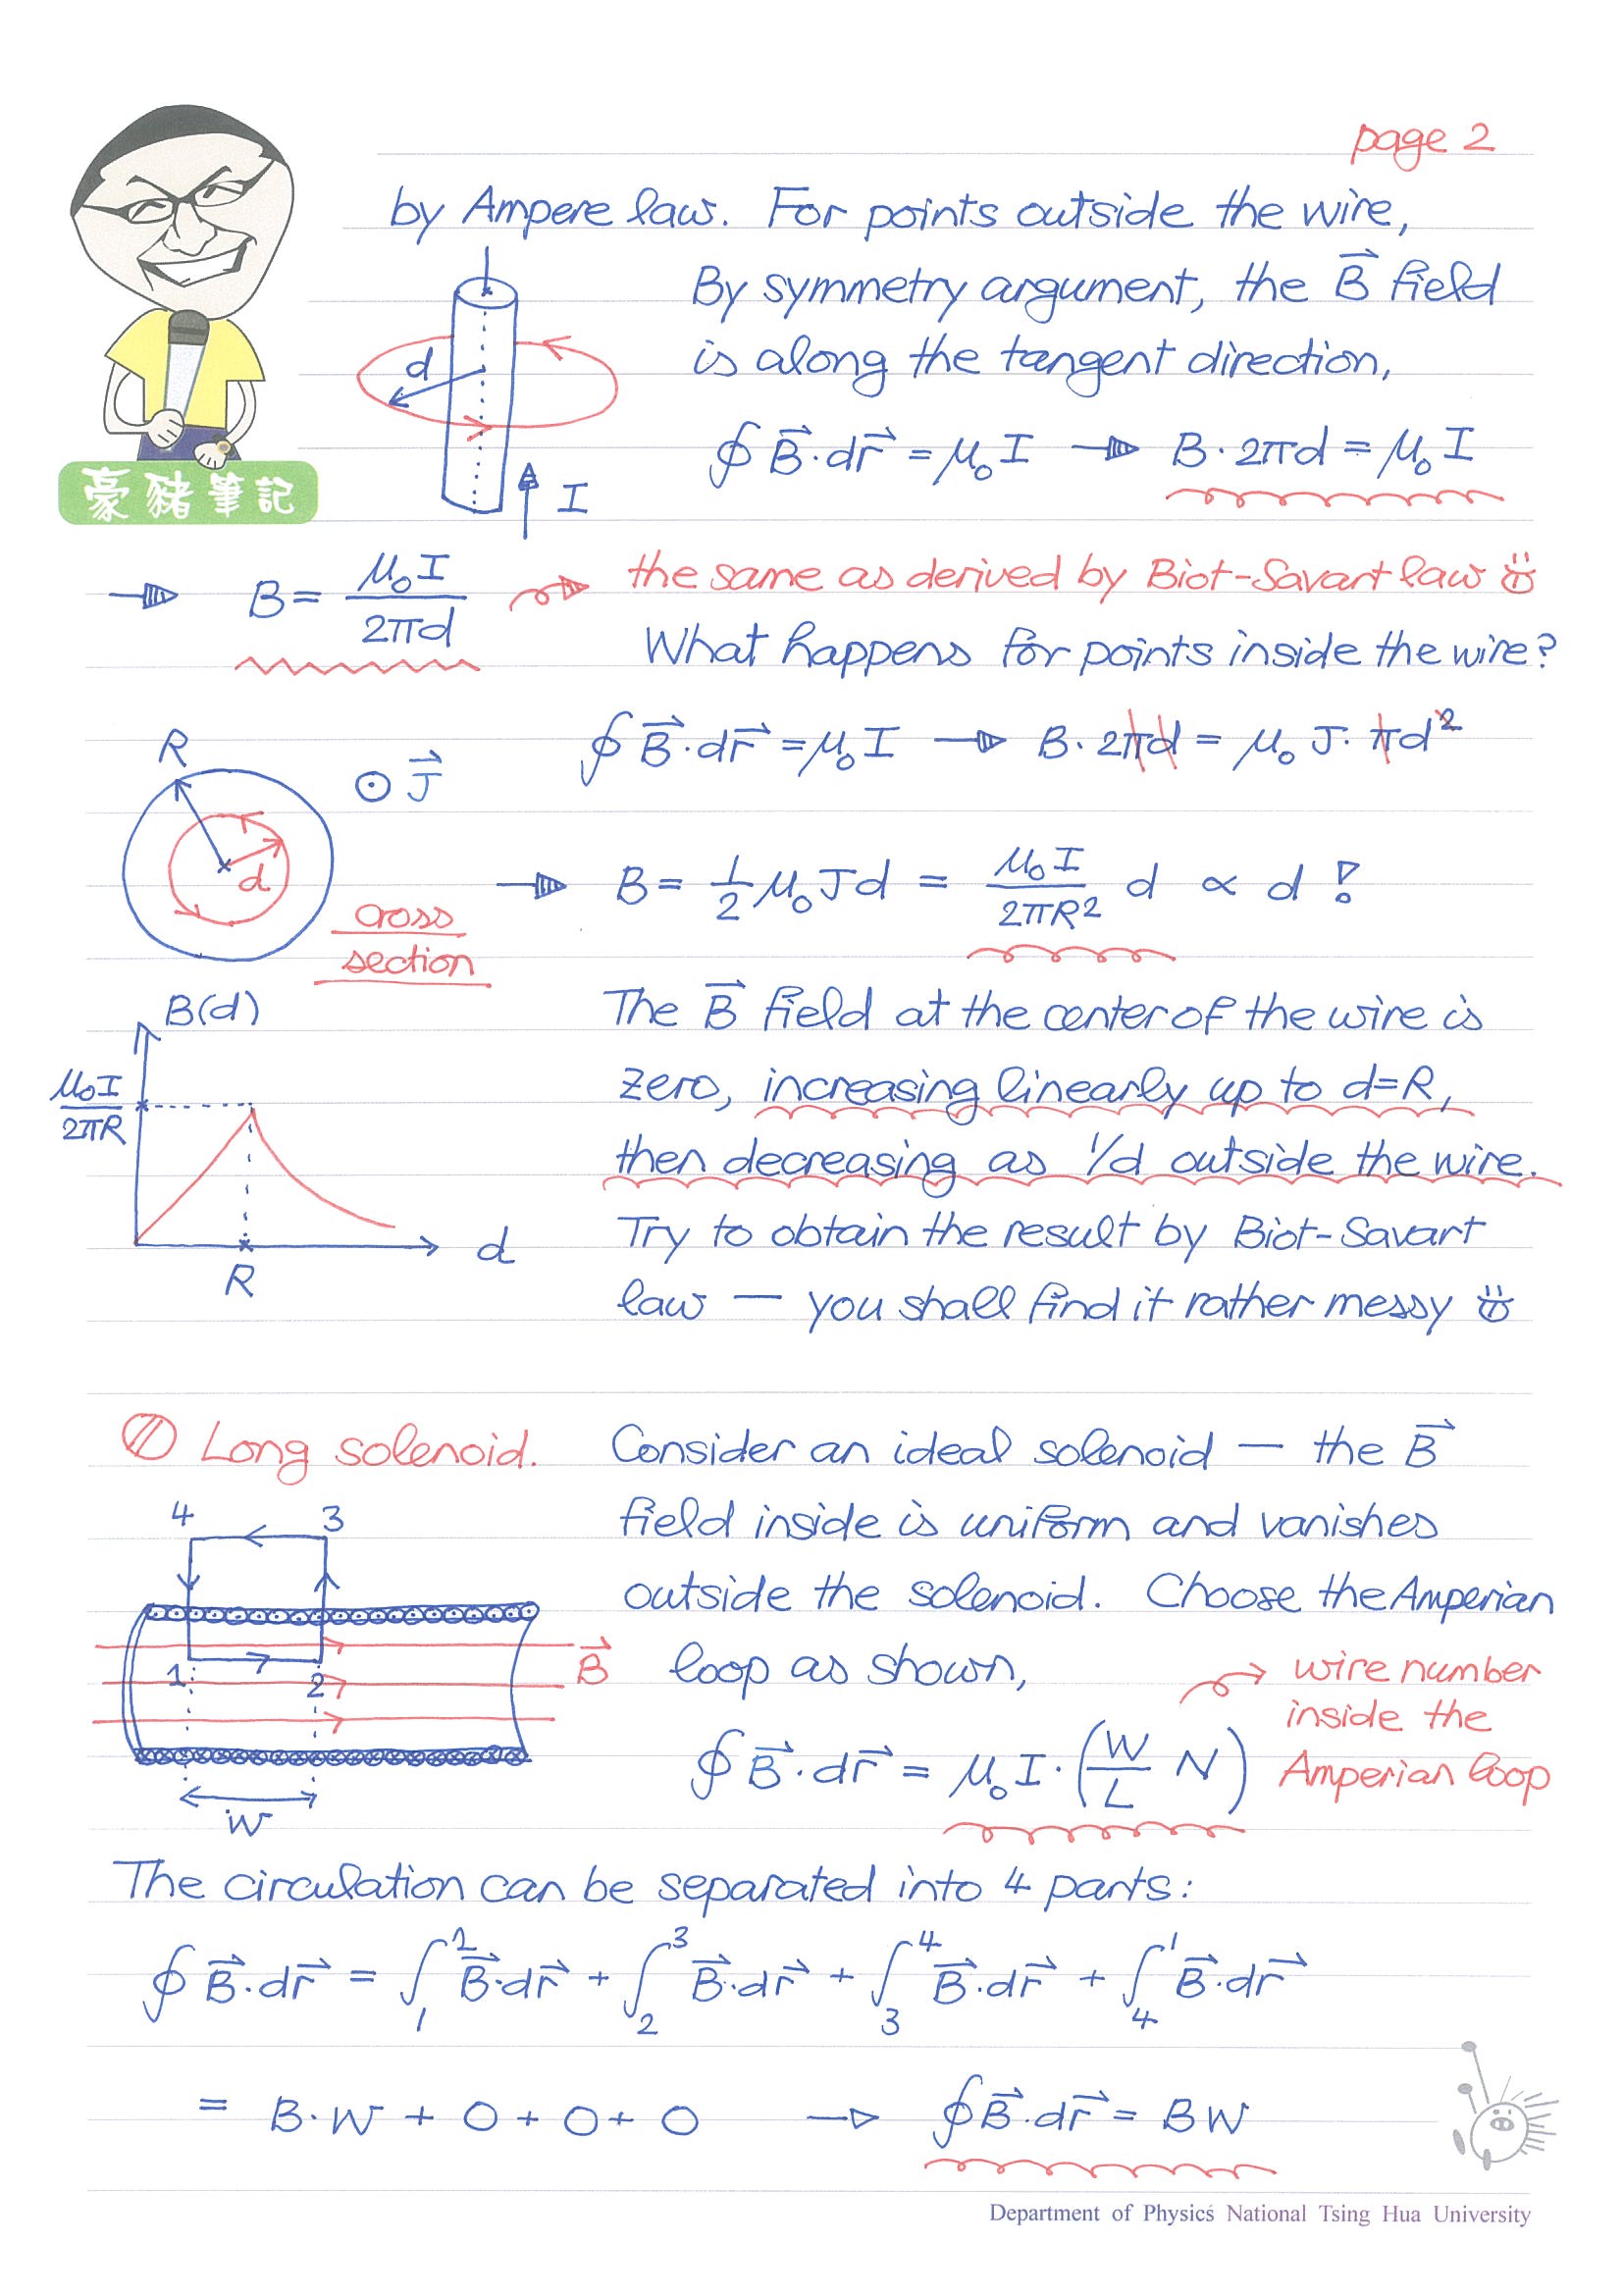 page 2
by Ampere law. For points outside the wire,
By symmetry argument, the B⃗ field
is along the tangent direction,
d
∮ B⃗·dr⃗ = μ₀I → B·2πd = μ₀I
I
豪豬筆記
→ B = μ₀I / 2πd the same as derived by Biot-Savart law
What happens for points inside the wire?
∮ B⃗·dr⃗ = μ₀I → B·2πd = μ₀J·πd²
R
⊙ J⃗
d
→ B = 1/2 μ₀Jd = μ₀I / 2πR² d ∝ d !
cross
section
B(d)
The B⃗ field at the center of the wire is
μ₀I / 2πR
zero, increasing linearly up to d=R,
then decreasing as 1/d outside the wire.
d
R
Try to obtain the result by Biot-Savart
law — you shall find it rather messy
Long solenoid. Consider an ideal solenoid — the B⃗
field inside is uniform and vanishes
4 3
outside the solenoid. Choose the Amperian
1 2
B⃗
loop as shown,
wire number
inside the
Amperian loop
∮ B⃗·dr⃗ = μ₀I·(W/L N)
W
The circulation can be separated into 4 parts:
∮ B⃗·dr⃗ = ∫₁² B⃗·dr⃗ + ∫₂³ B⃗·dr⃗ + ∫₃⁴ B⃗·dr⃗ + ∫₄¹ B⃗·dr⃗
= B·W + 0 + 0 + 0 → ∮ B⃗·dr⃗ = BW
Department of Physics National Tsing Hua University